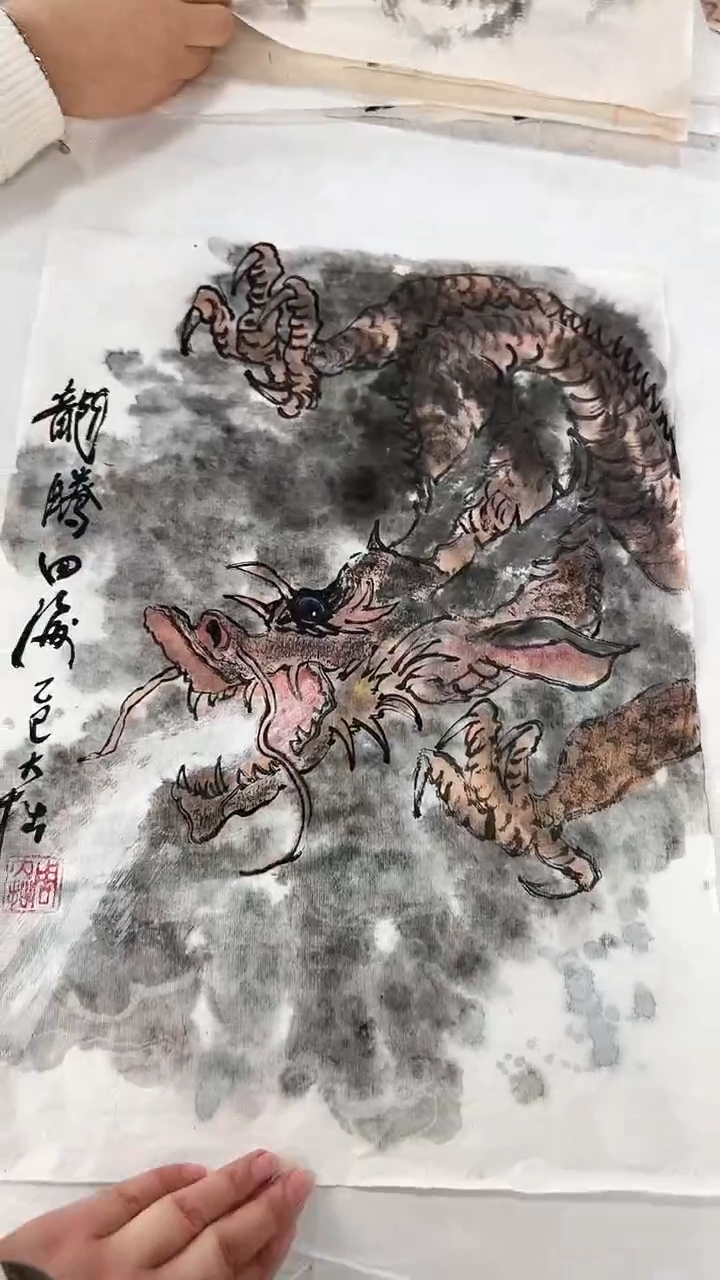 龍騰四海 乙巳大拙